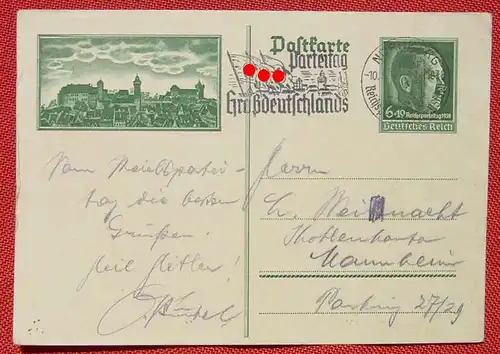 Postkarte
Parteitag
Großdeutschlands
-10.
6+19 Reichsparteitag 1938
Deutsches Reich
Vom Reichspartei-
tag die besten
Grüßen.
Heil Hitler!
Herrn
Weihnacht
Mannheim
Parkring 27/29